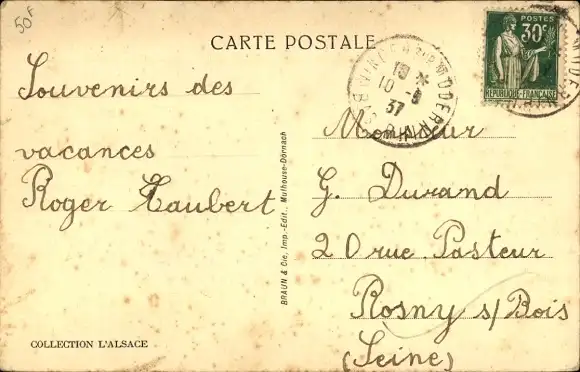 50F
CARTE POSTALE
Souvenirs des
vacances
Roger Taubert
BRAUN & Cie, Imp.-Edit., Mulhouse-Dornach
COLLECTION L'ALSACE
POSTES
30c
REPUBLIQUE FRANÇAISE
SUR MODER
BAS-RHIN
10 -8
37
Monsieur
G. Durand
20 rue Pasteur
Rosny s/ Bois
(Seine)